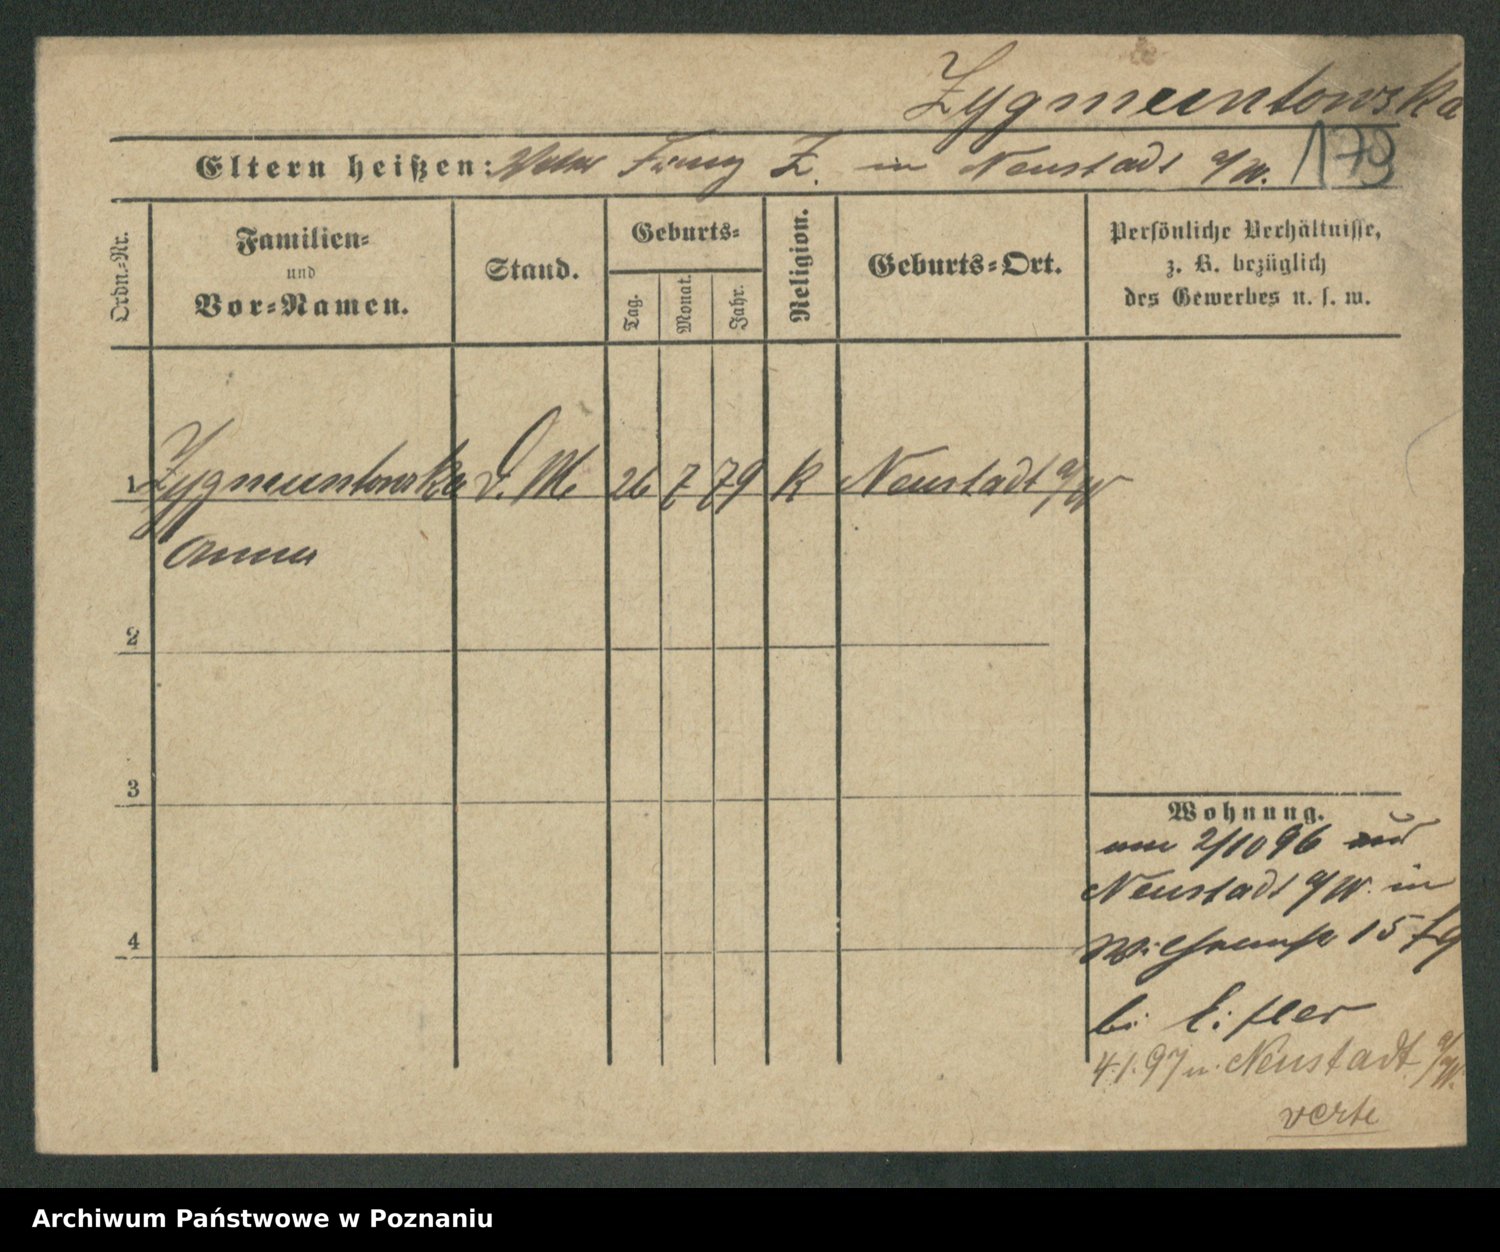 Zygmuntowska
Eltern heißen: Vater Franz Z. in Neustadt a/W. 179
Ordn.-Nr.
Familien-
und
Vor-Namen.
Stand.
Geburts-
Tag.
Monat.
Jahr.
Religion.
Geburts-Ort.
Persönliche Verhältnisse,
z. B. bezüglich
des Gewerbes u. s. w.
1 Zygmuntowska D. M. 26 7 79 K Neustadt a/W
Anna
2
3
4
Wohnung.
2/10 96 aus
Neustadt a/W. in
15
bei
4.1.97 n. Neustadt a/W.
verte
Archiwum Państwowe w Poznaniu